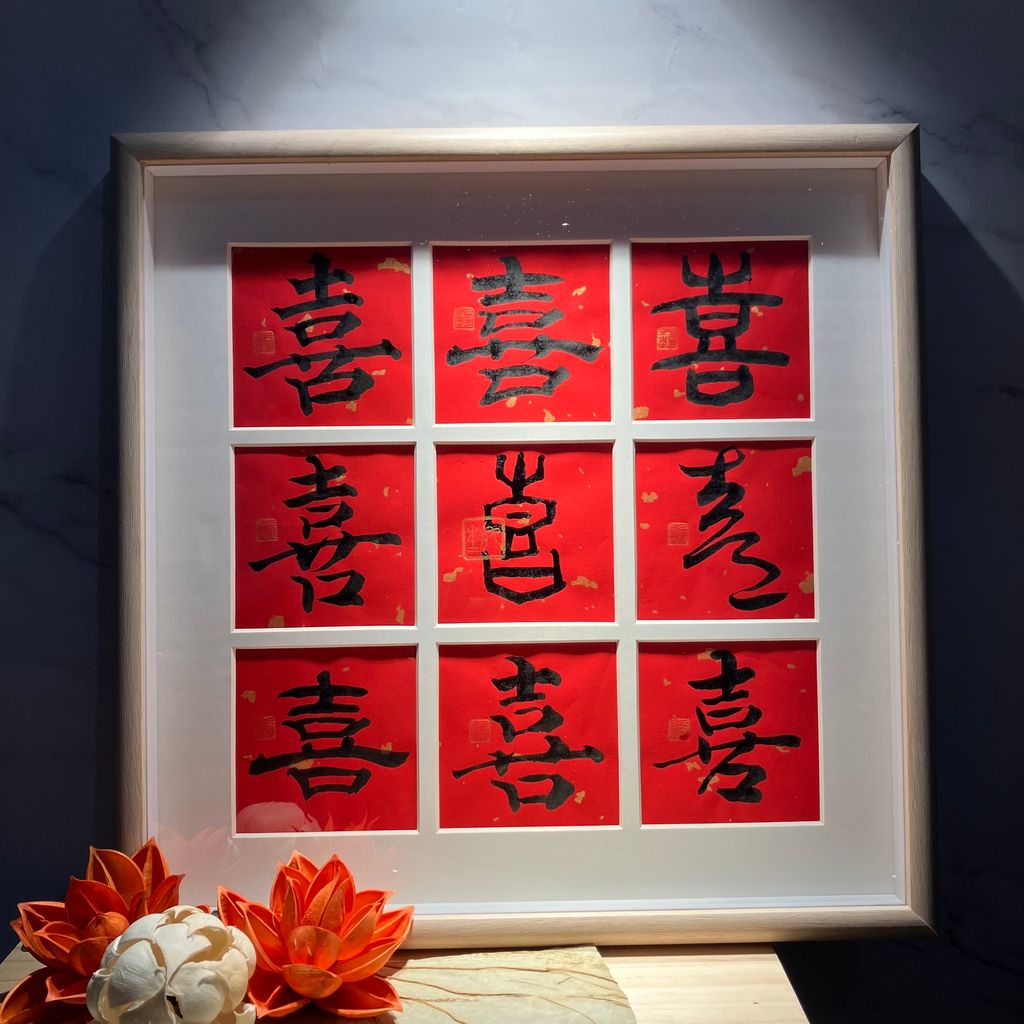 喜 喜 喜
喜 喜 喜
喜 喜 喜